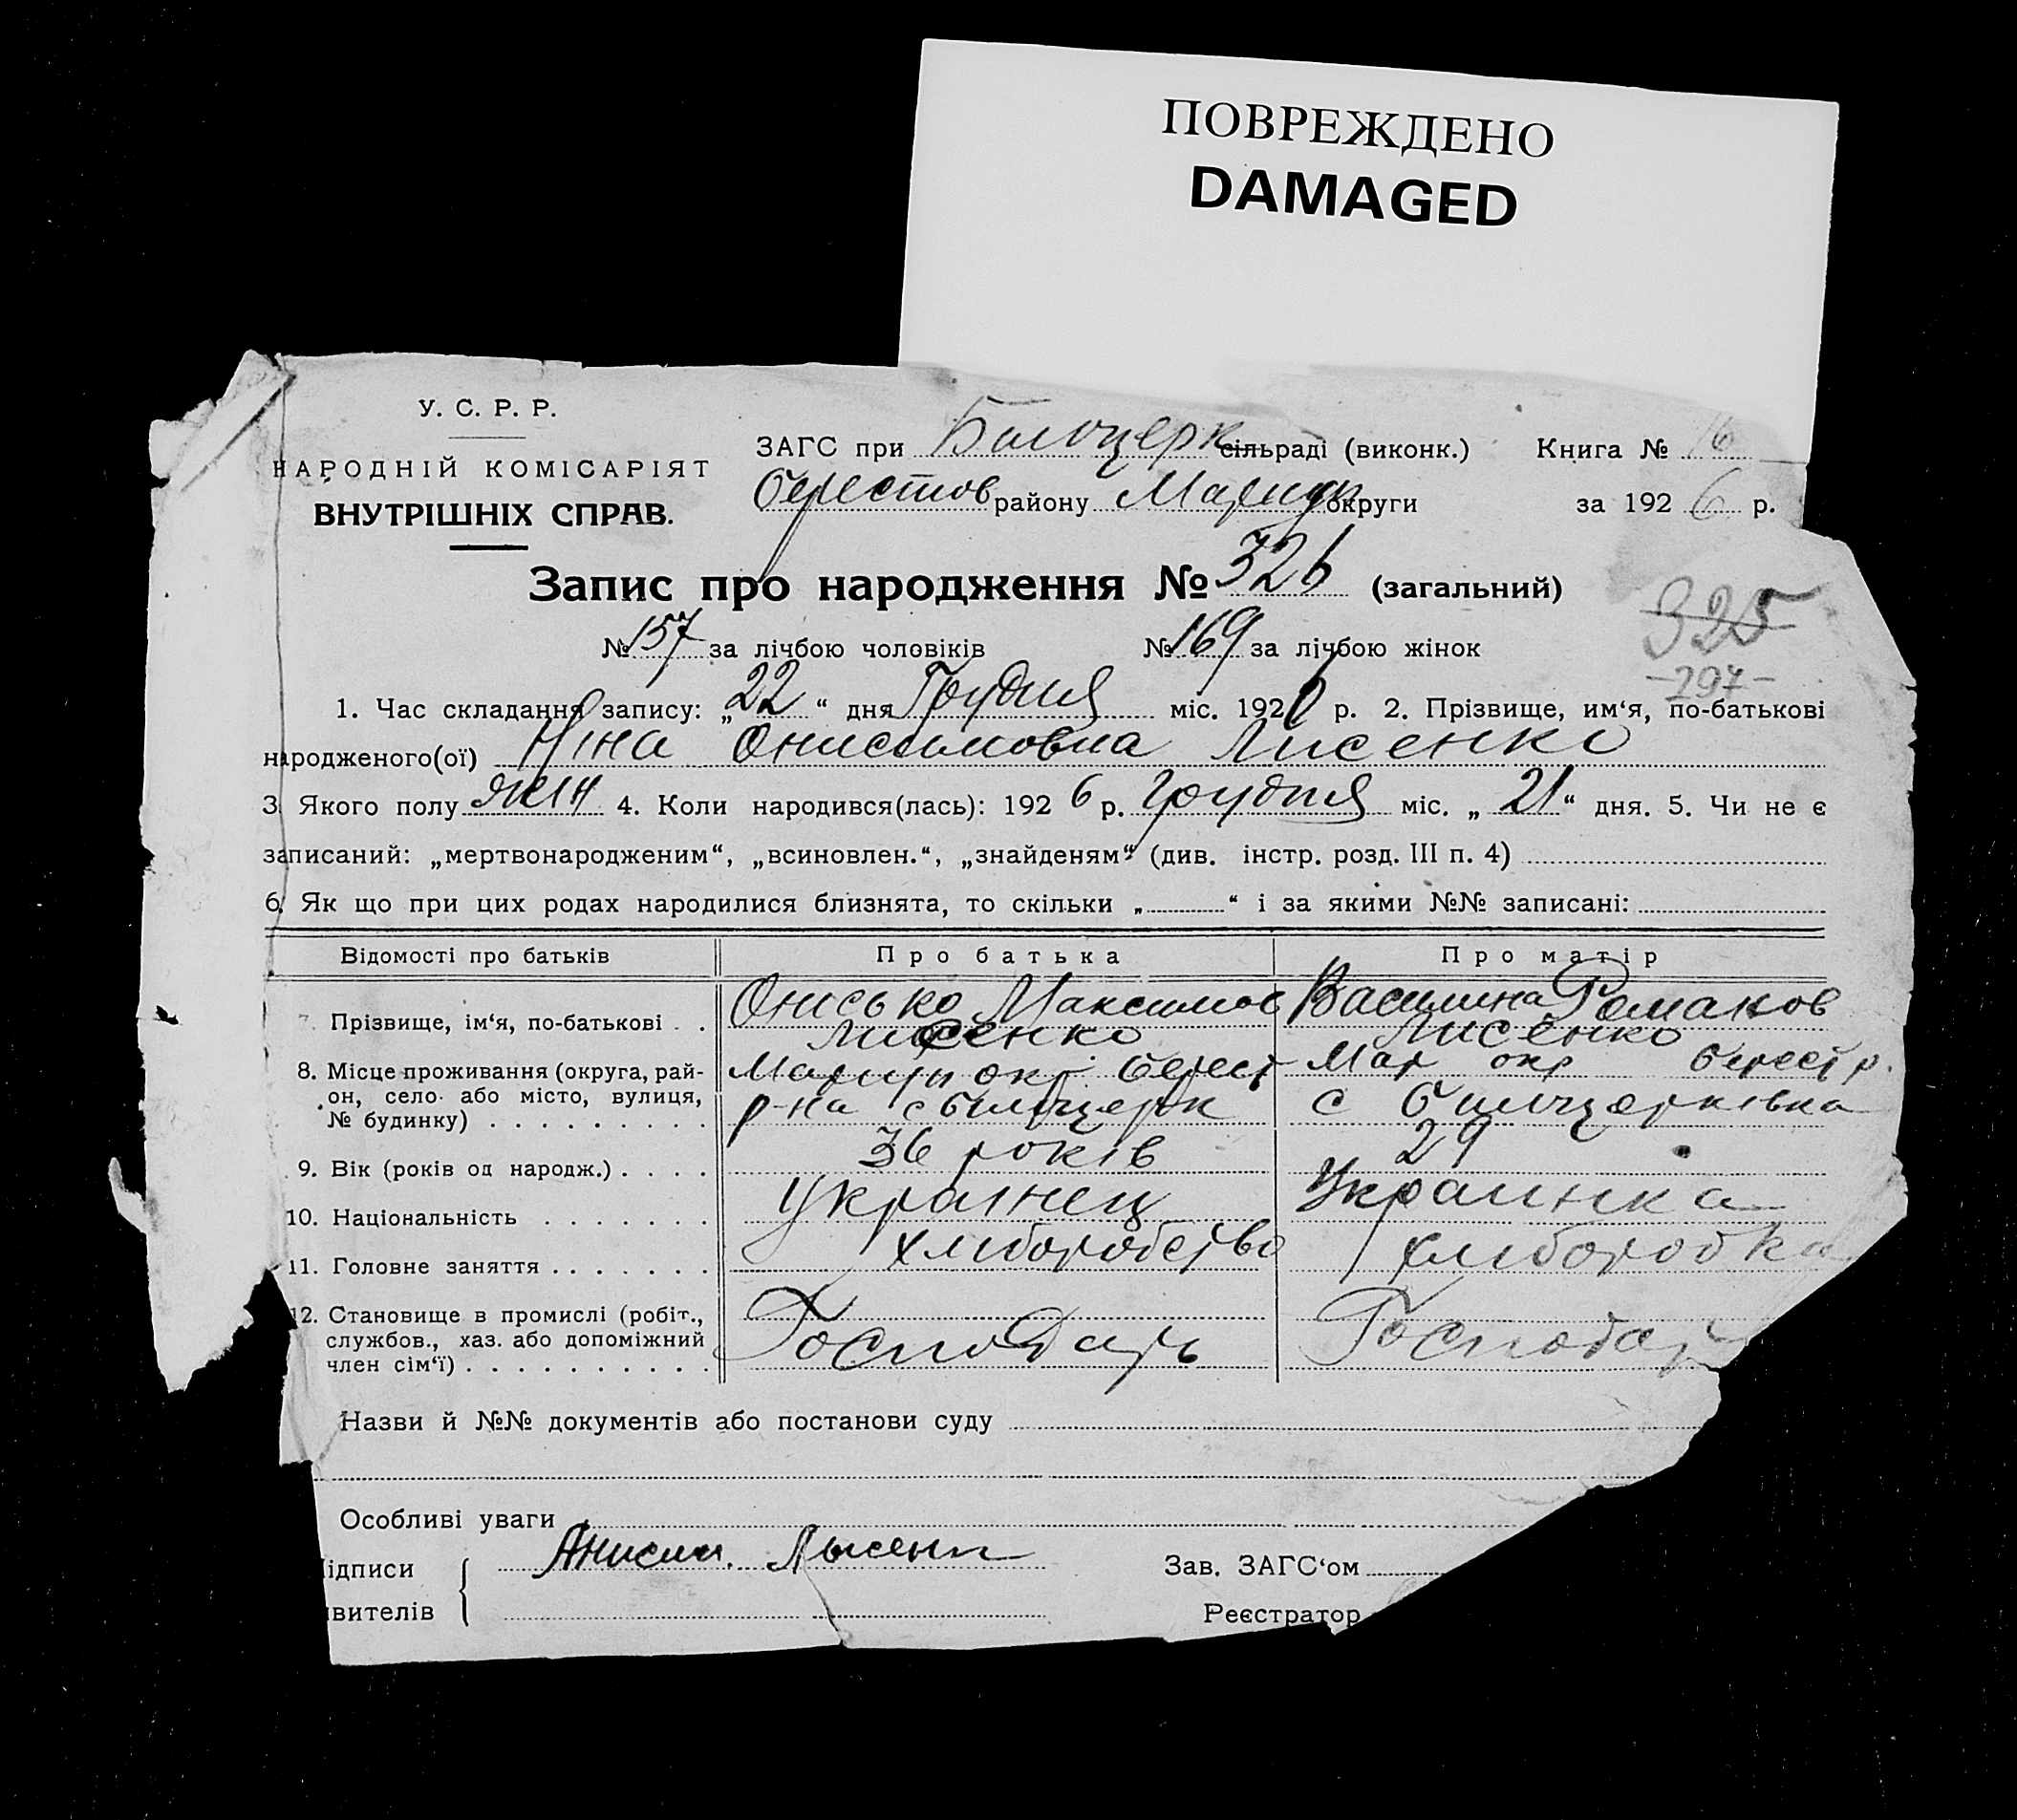 ПОВРЕЖДЕНО
DAMAGED
У. С. Р. Р.
НАРОДНІЙ КОМІСАРІЯТ
ВНУТРІШНІХ СПРАВ.
ЗАГС при Билоцерк сільраді (виконк.) Книга № 16
Берестов району Мариуп округи за 1926 р.
Запис про народження № 326 (загальний)
325
№ 157 за лічбою чоловіків № 169 за лічбою жінок
-297-
1. Час складання запису: „22“ дня Грудня міс. 192 р. 2. Прізвище, им‘я, по-батькові
народженого(ої) Ніна Онисимовна Лисенко
3. Якого полу жін 4. Коли народився(лась): 1926 р. Грудня міс. „21“ дня. 5. Чи не є
записаний: „мертвонародженим“, „всиновлен.“, „знайденям“ (див. інстр. розд. III п. 4)
6. Як що при цих родах народилися близнята, то скільки „ “ і за якими №№ записані:
Відомості про батьків Про батька Про матір
7. Прізвище, ім‘я, по-батькові . . Онисько Максимов Василина Романов
Лисенко Лисенко
8. Місце проживання (округа, рай- Мариуп окр. Берест Мар окр Берест р.
он, село або місто, вулиця, р-на с Билоцерк с Билоцерківка
№ будинку) . . . . . . . . . .
9. Вік (років од народж.) . . . . 36 років 29
10. Національність . . . . . . . Украінец Украинка
11. Головне заняття . . . . . . . хлиборобство хлиборобка
12. Становище в промислі (робіт.,
службов., хаз. або допоміжний Господарь Господар
член сім‘ї) . . . . . . . . . .
Назви й №№ документів або постанови суду
Особливі уваги
ідписи Анисим. Лысенк Зав. ЗАГС‘ом
вителів Реєстратор